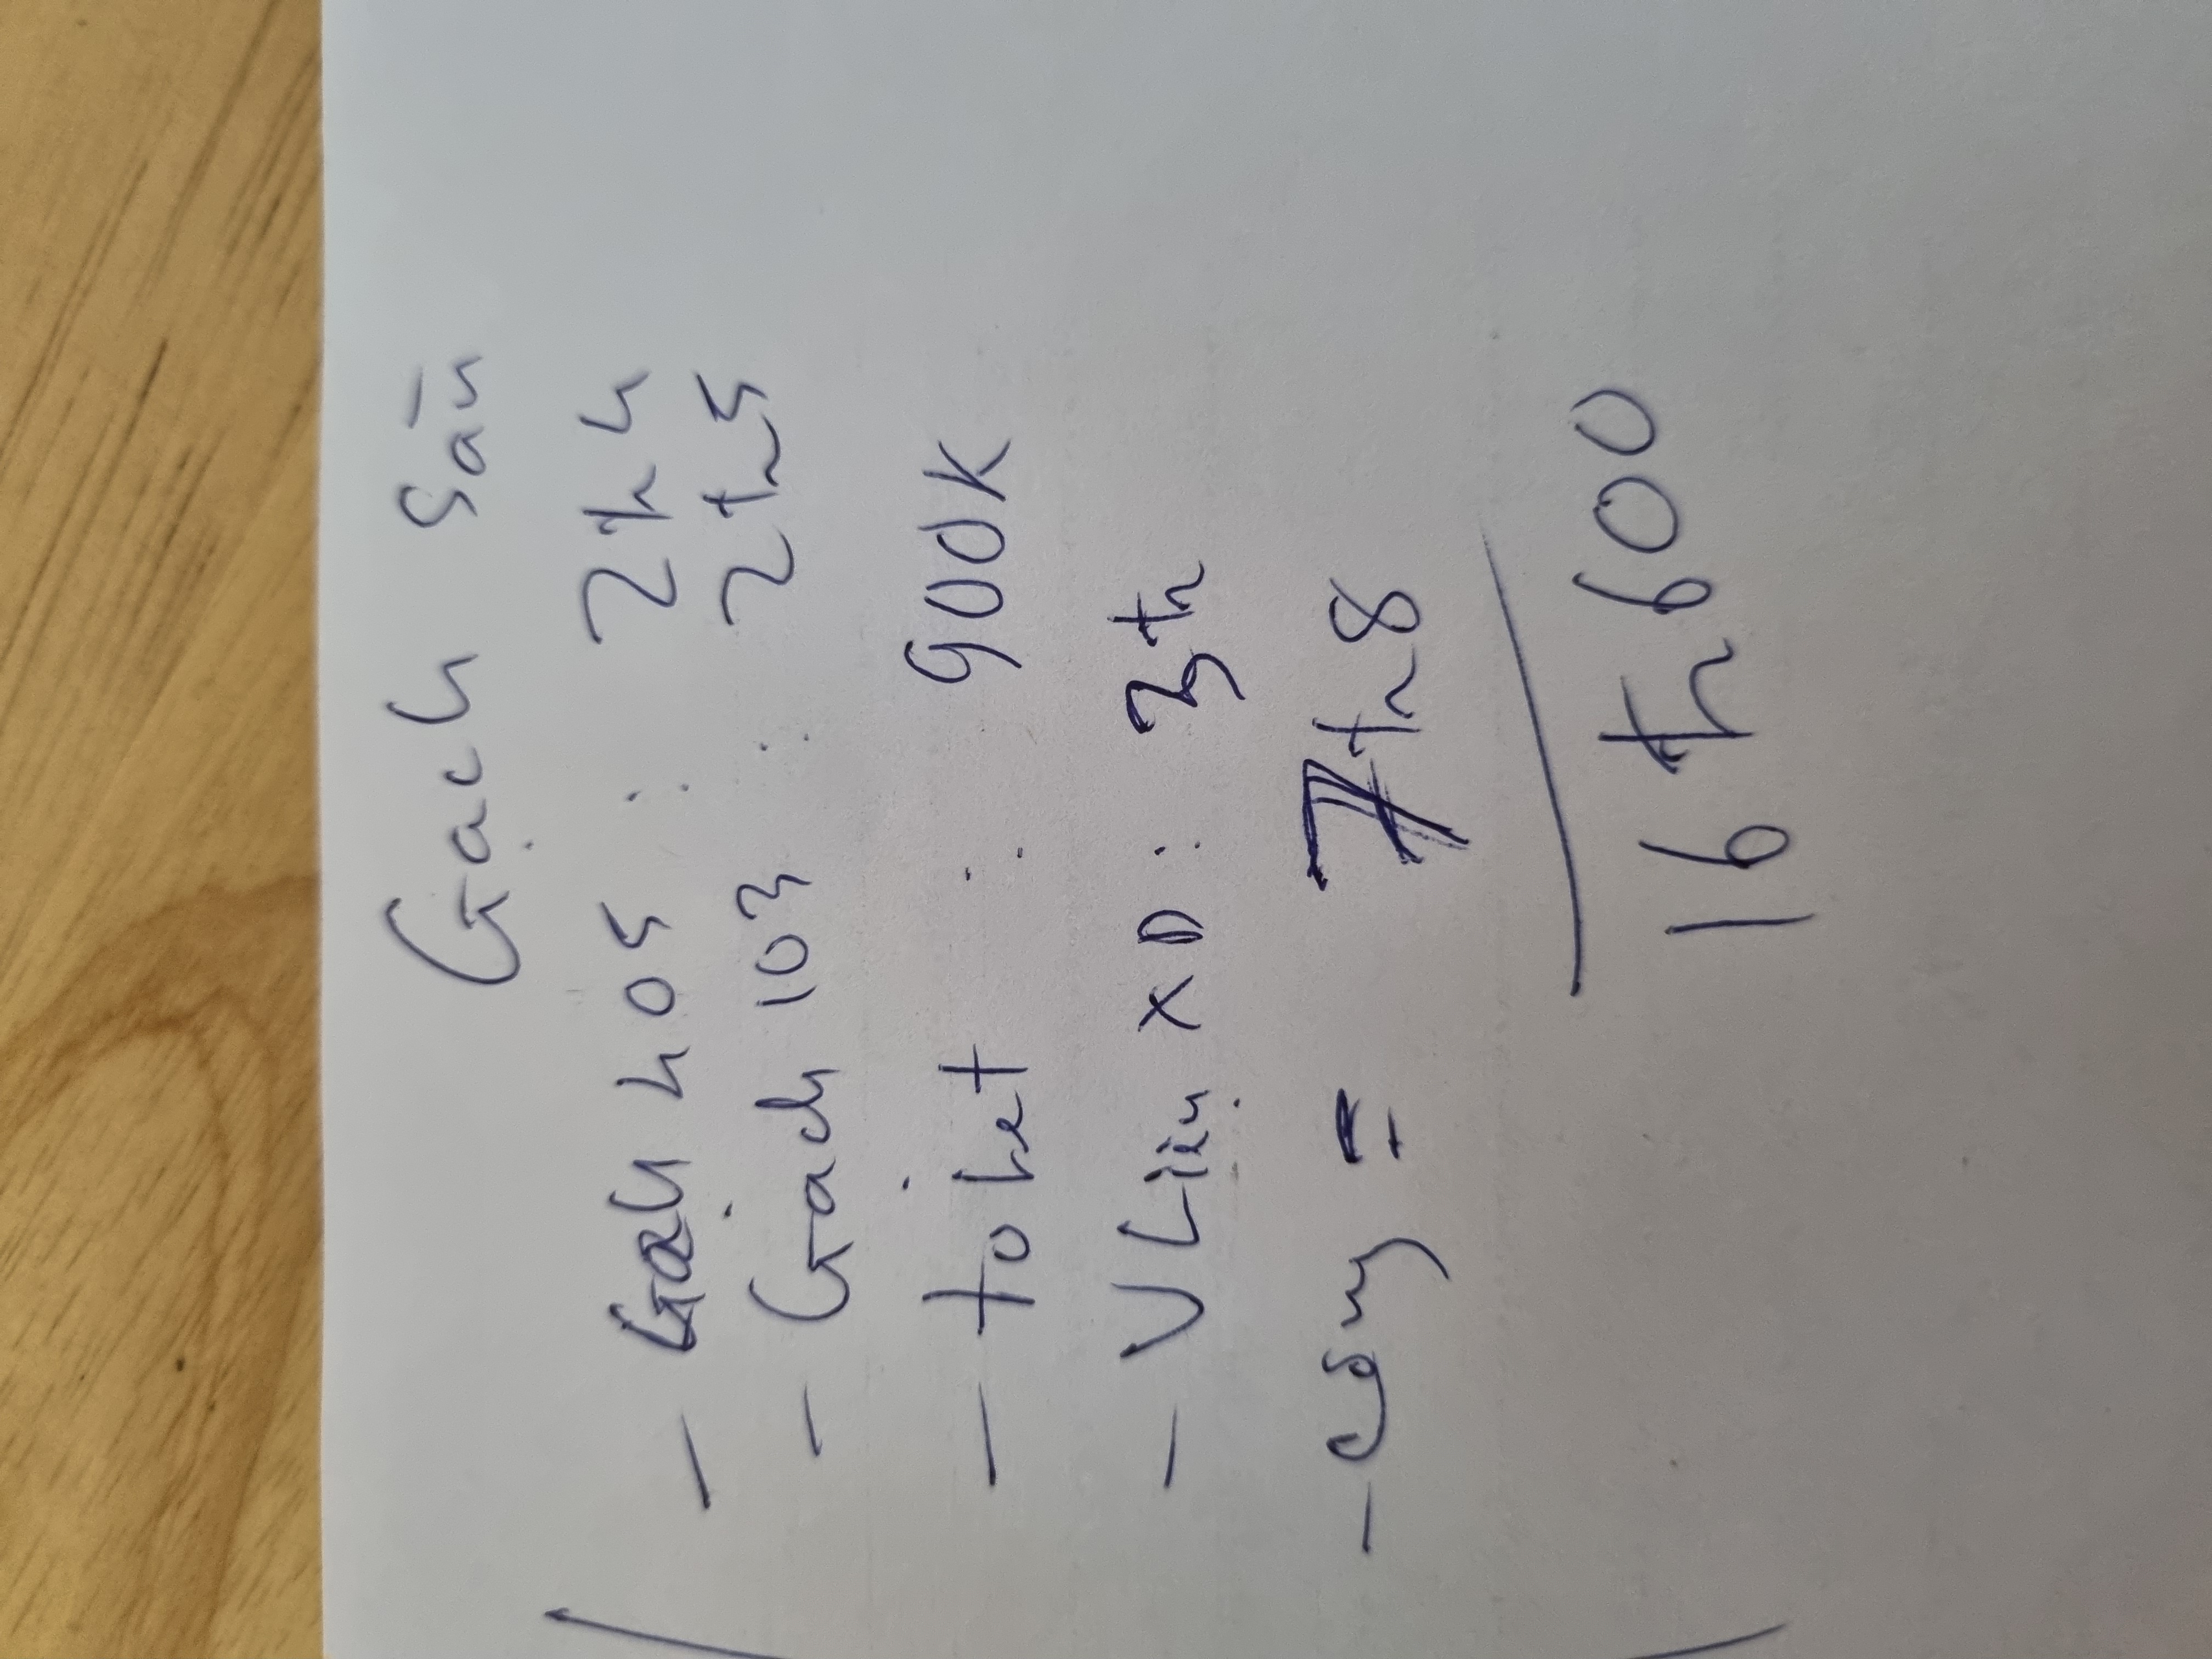 Gạch Sân
- Gạch 405 : 2tr4
- Gạch 103 : 2tr5
- toilet : 900K
- V Liệu XD : 3tr
- Công = 7tr8
16 tr 600